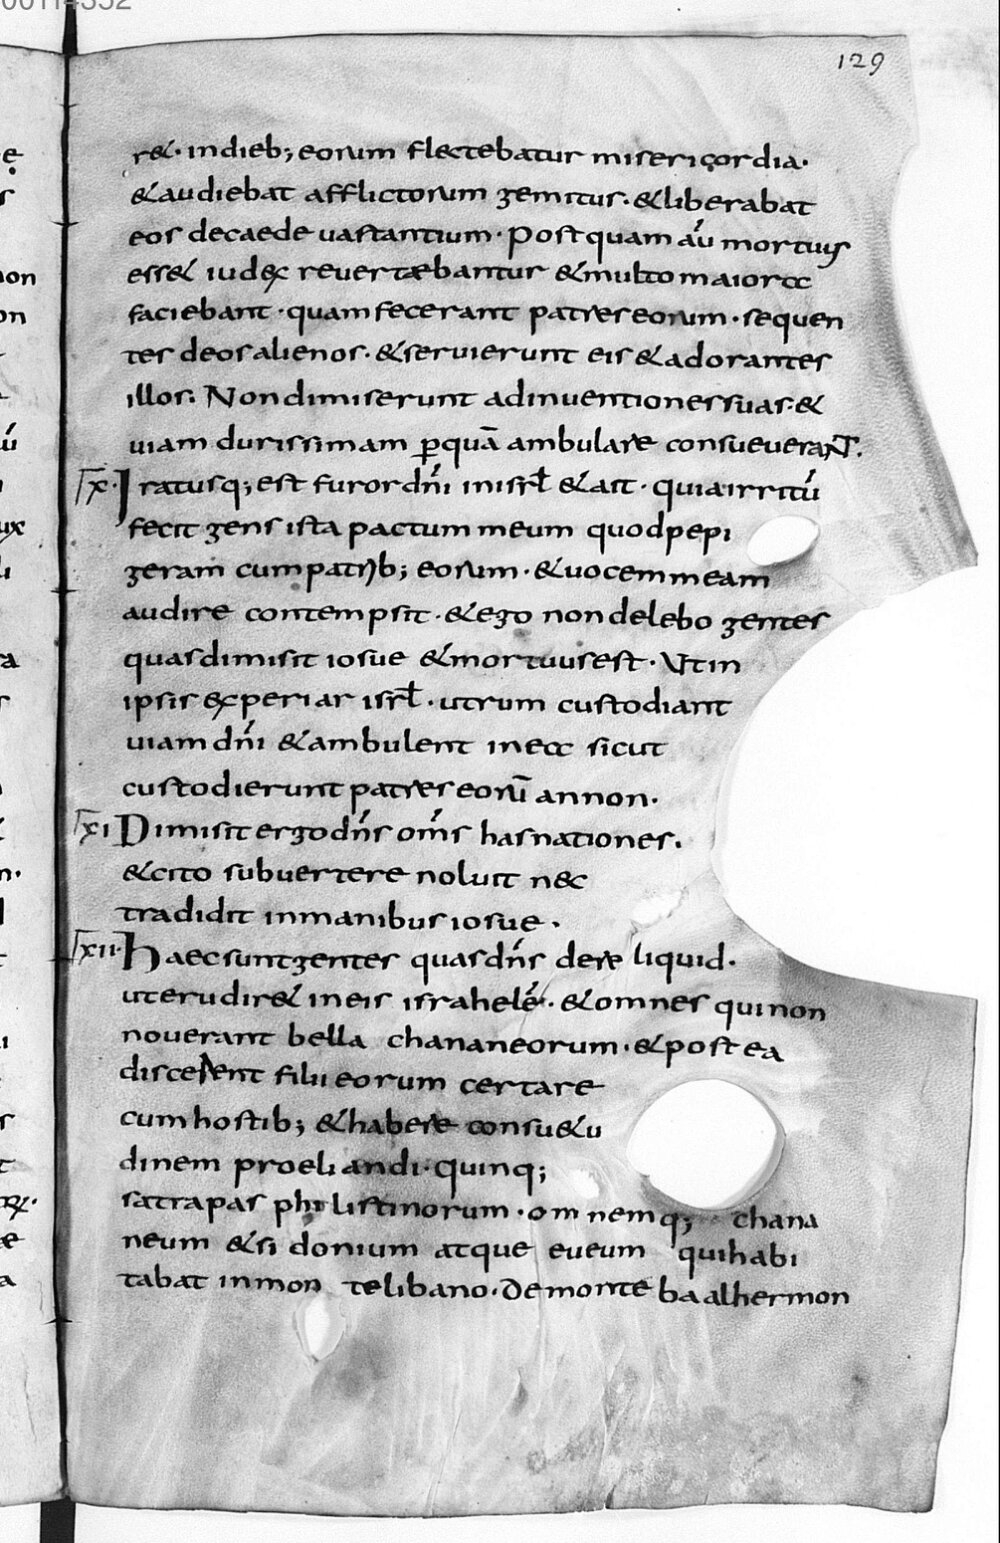 00114352
129
r&. indieb; eorum flectebatur misericordia.
&audiebat afflictorum gemitus. &liberabat
eos decaede uastantium. Postquam aū mortuus
ess& iudex reuertebantur &multo maiora
faciebant. quam fecerant patres eorum. sequen
tes deos alienos. &seruierunt eis &adorantes
illos. Non dimiserunt adinuentiones suas. &
uiam durissimam ꝑquā ambulare consueuerant.
x. Iratusq; est furor dn̄i in isrl̄ &ait. quia irritū
fecit gens ista pactum meum quod pepi
geram cum patrib; eorum. &uocem meam
audire contempsit. &ego non delebo gentes
quas dimisit iosue &mortuus est. Ut in
ipsis experiar isrl̄. utrum custodiant
uiam dn̄i &ambulent in ea sicut
custodierunt patres eorū an non.
xi Dimisit ergo dn̄s om̄s has nationes.
&cito subuertere noluit nec
tradidit in manibus iosue.
xii. Haec sunt gentes quas dn̄s dere liquid.
ut erudir& in eis israhelē. &omnes qui non
nouerant bella chananeorum. &post ea
discerent filii eorum certare
cum hostib; &habere consu&u
dinem proeliandi. quinq;
satrapas philistinorum. omnemq; chana
neum &si donium atque eueum qui habi
tabat in mon te libano. De monte baalhermon